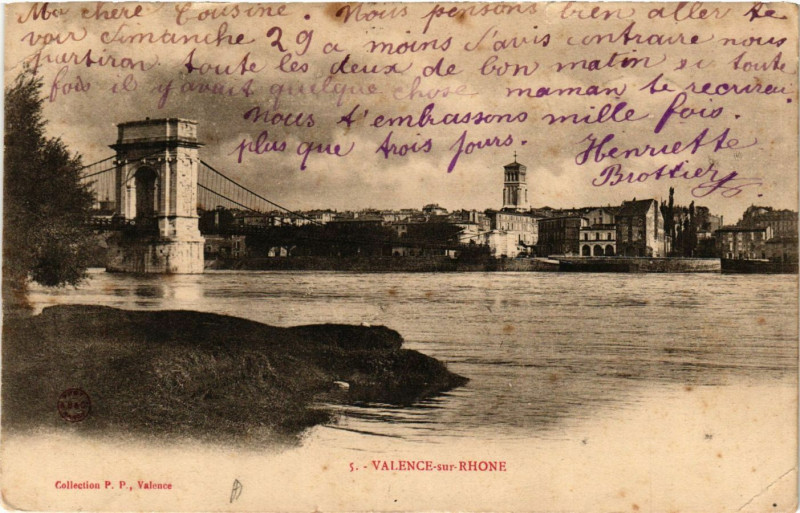 Ma chère Cousine. Nous pensons bien aller te
voir dimanche 29 a moins d'avis contraire nous
partiron toute les deux de bon matin si toute
fois il y avait quelque chose maman te recrirai.
Nous t'embrassons mille fois.
plus que trois jours.
Henriette
Brottier
5. - VALENCE-sur-RHONE
Collection P. P., Valence